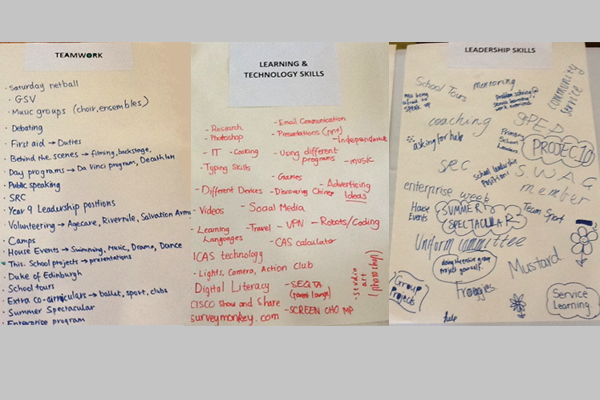 TEAMWORK
· Saturday netball
· GSV
· Music groups (choir, ensembles)
· Debating
· First aid → Duties
· Behind the scenes → filming, backstage,
· Day programs → Da Vinci program, Decathlon
· Public speaking
· SRC
· Year 9 Leadership positions
· Volunteering → Agecare, Rivernile, Salvation Army
· Camps
· House Events → Swimming, Music, Drama, Dance
· This. School projects → presentations
· Duke of Edinburgh
· School tours
· Extra co-curriculars → ballet, sport, clubs
· Summer Spectacular
· Enterprise program
LEARNING &
TECHNOLOGY SKILLS
- Research
- Email Communication
- Photoshop
- Presentations
- Independence
- IT
- Cooking
- Using different programs
- music
- Typing Skills
- Games
- Different Devices
- Discovering Chinese
- Advertising Ideas
- Videos
- Social Media
- Learning Languages
- Travel
- VPN
- Robots/Coding
- CAS calculator
ICAS technology
- Lights, Camera, Action Club
Digital Literacy
- SEQTA
CISCO Show and Share
- SCREEN CHOMP
surveymonkey.com
- studio art (photoshop)
LEADERSHIP SKILLS
School Tours
mentoring
Not being afraid to speak up
Problem solving
community service
coaching
SPED
asking for help
Primary School Leaders
PROJECT 10
SRC
School leadership positions
S.W.A.G member
enterprise week
House Events
SUMMER SPECTACULAR
Team Sport
Uniform committee
doing the whole group project yourself
Mustard
Group Projects
Froggies
Service Learning
help